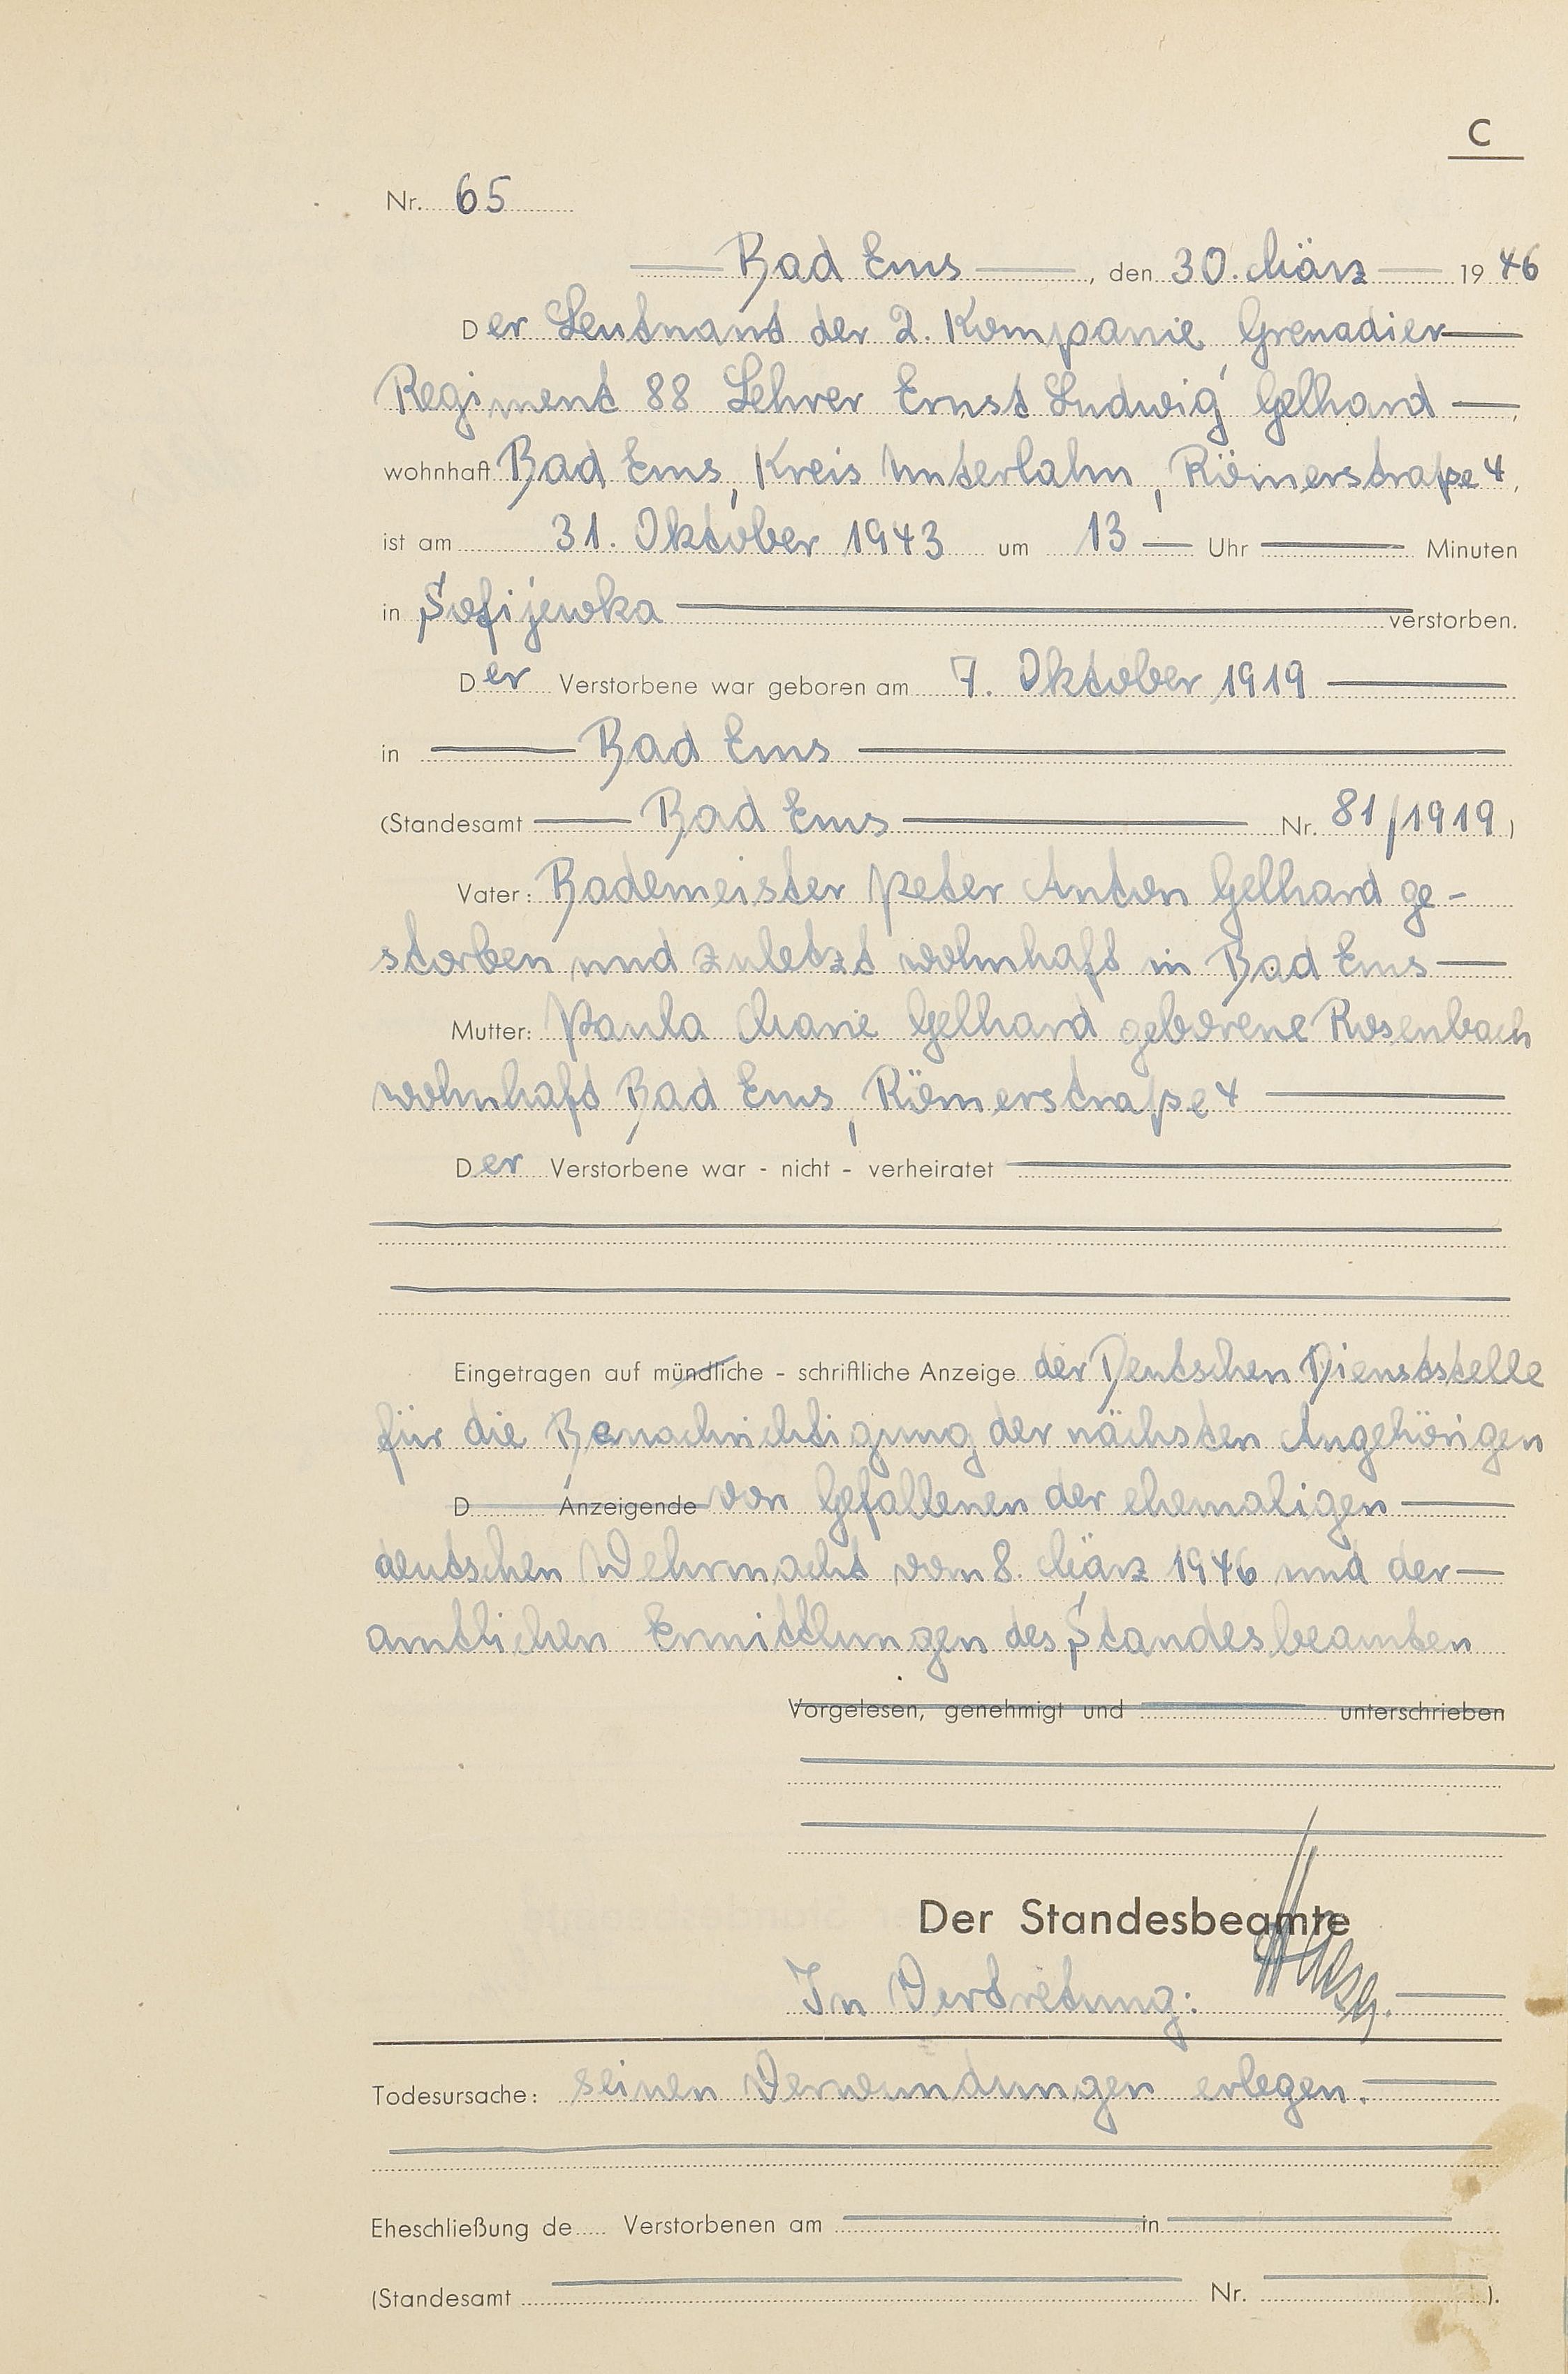 C
Nr. 65
Bad Ems, den 30. März 1946
Der Leutnant der 2. Kompanie Grenadier
Regiment 88 Lehrer Ernst Ludwig Gelhard,
wohnhaft Bad Ems, Kreis Unterlahn, Römerstraße 4,
ist am 31. Oktober 1943 um 13 Uhr Minuten
in Sofijewka verstorben.
Der Verstorbene war geboren am 7. Oktober 1919
in Bad Ems
(Standesamt Bad Ems Nr. 81/1919)
Vater: Bademeister Peter Anton Gelhard ge-
storben und zuletzt wohnhaft in Bad Ems
Mutter: Paula Marie Gelhard geborene Rosenbach
wohnhaft Bad Ems, Römerstraße 4
Der Verstorbene war - nicht - verheiratet
Eingetragen auf mündliche - schriftliche Anzeige der Deutschen Dienststelle
für die Benachrichtigung der nächsten Angehörigen
D Anzeigende von Gefallenen der ehemaligen
deutschen Wehrmacht vom 8. März 1946 und der
amtlichen Ermittlungen des Standesbeamten
Vorgelesen, genehmigt und unterschrieben
Der Standesbeamte
In Vertretung:
Todesursache: seinen Verwundungen erlegen.
Eheschließung de Verstorbenen am in
(Standesamt Nr. ).